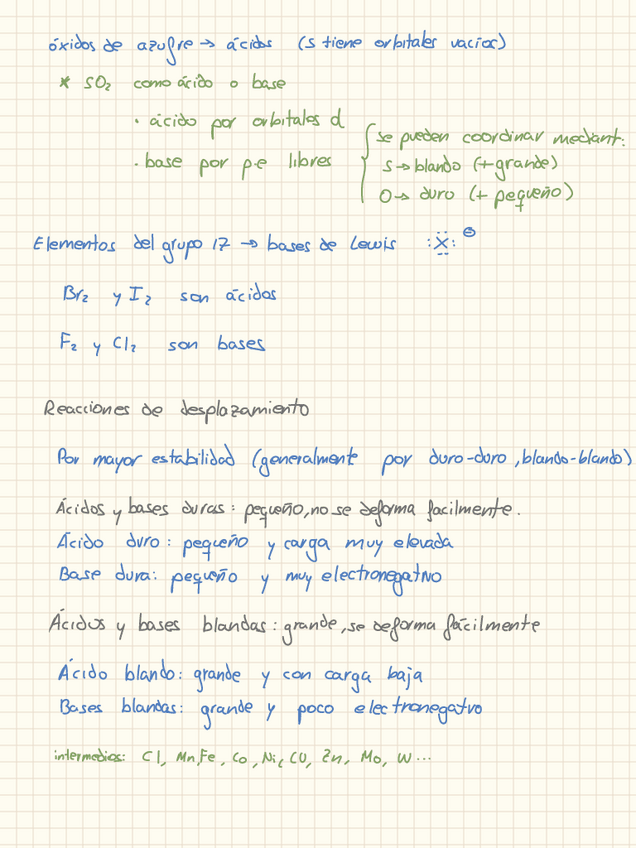 óxidos de azufre → ácidos (S tiene orbitales vacíos)
* SO₂ como ácido o base
· ácido por orbitales d
· base por p.e libres
se pueden coordinar mediant:
S → blando (+grande)
O → duro (+ pequeño)
Elementos del grupo 17 → bases de Lewis :Ẍ: ⊖
Br₂ y I₂ son ácidos
F₂ y Cl₂ son bases
Reacciones de desplazamiento
Por mayor estabilidad (generalmente por duro-duro, blando-blando)
Ácidos y bases duras: pequeño, no se deforma facilmente.
Ácido duro: pequeño y carga muy elevada
Base dura: pequeño y muy electronegatvo
Ácidos y bases blandas: grande, se deforma fácilmente
Ácido blando: grande y con carga baja
Bases blandas: grande y poco electronegatvo
intermedios: Cl, Mn, Fe, Co, Ni, CU, Zn, Mo, W...